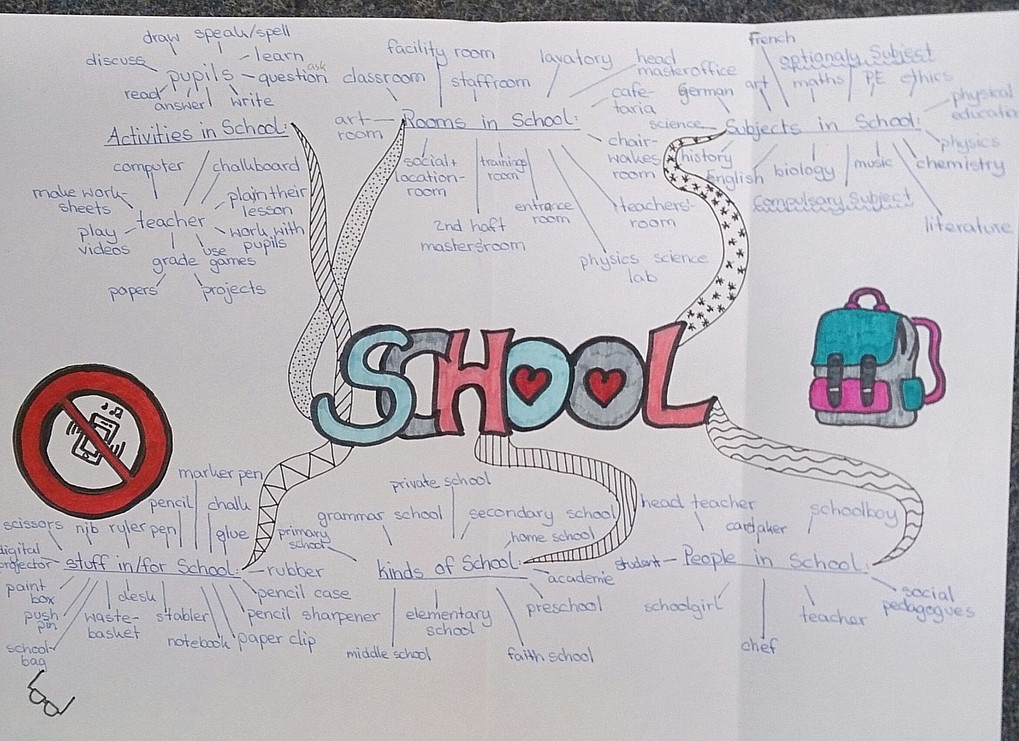 draw speak/spell
discuss
learn
pupils
question
ask
read
answer
write
Activities in School:
computer
chalkboard
make work-
sheets
plain their
lesson
teacher
play
videos
work with
pupils
use
games
grade
papers
projects
facility room
classroom
staffroom
lavatory
head
masteroffice
cafe-
taria
art-
room
Rooms in School:
chair-
wakes
room
social+
location-
room
trainings
room
entrance
room
teachers-
room
2nd haft
mastersroom
physics science
lab
french
optionaly Subject
german
art
maths
PE
ethics
physical
science
Subjects in School:
history
physics
English
biology
music
chemistry
compulsary Subject
literature
SCHOOL
marker pen
pencil
chalk
scissors
nib
ryler
pen
glue
digital
projector
stuff in/for School:
rubber
paint
box
pencil case
desk
push
pin
waste-
basket
stabler
pencil sharpener
notebook
paper clip
school-
bag
private school
grammar school
secondary school
primary
school
home school
kinds of School:
academie
preschool
elementary
school
middle school
faith school
head teacher
schoolboy
student
People in School:
social
pedagogues
schoolgirl
teacher
chef